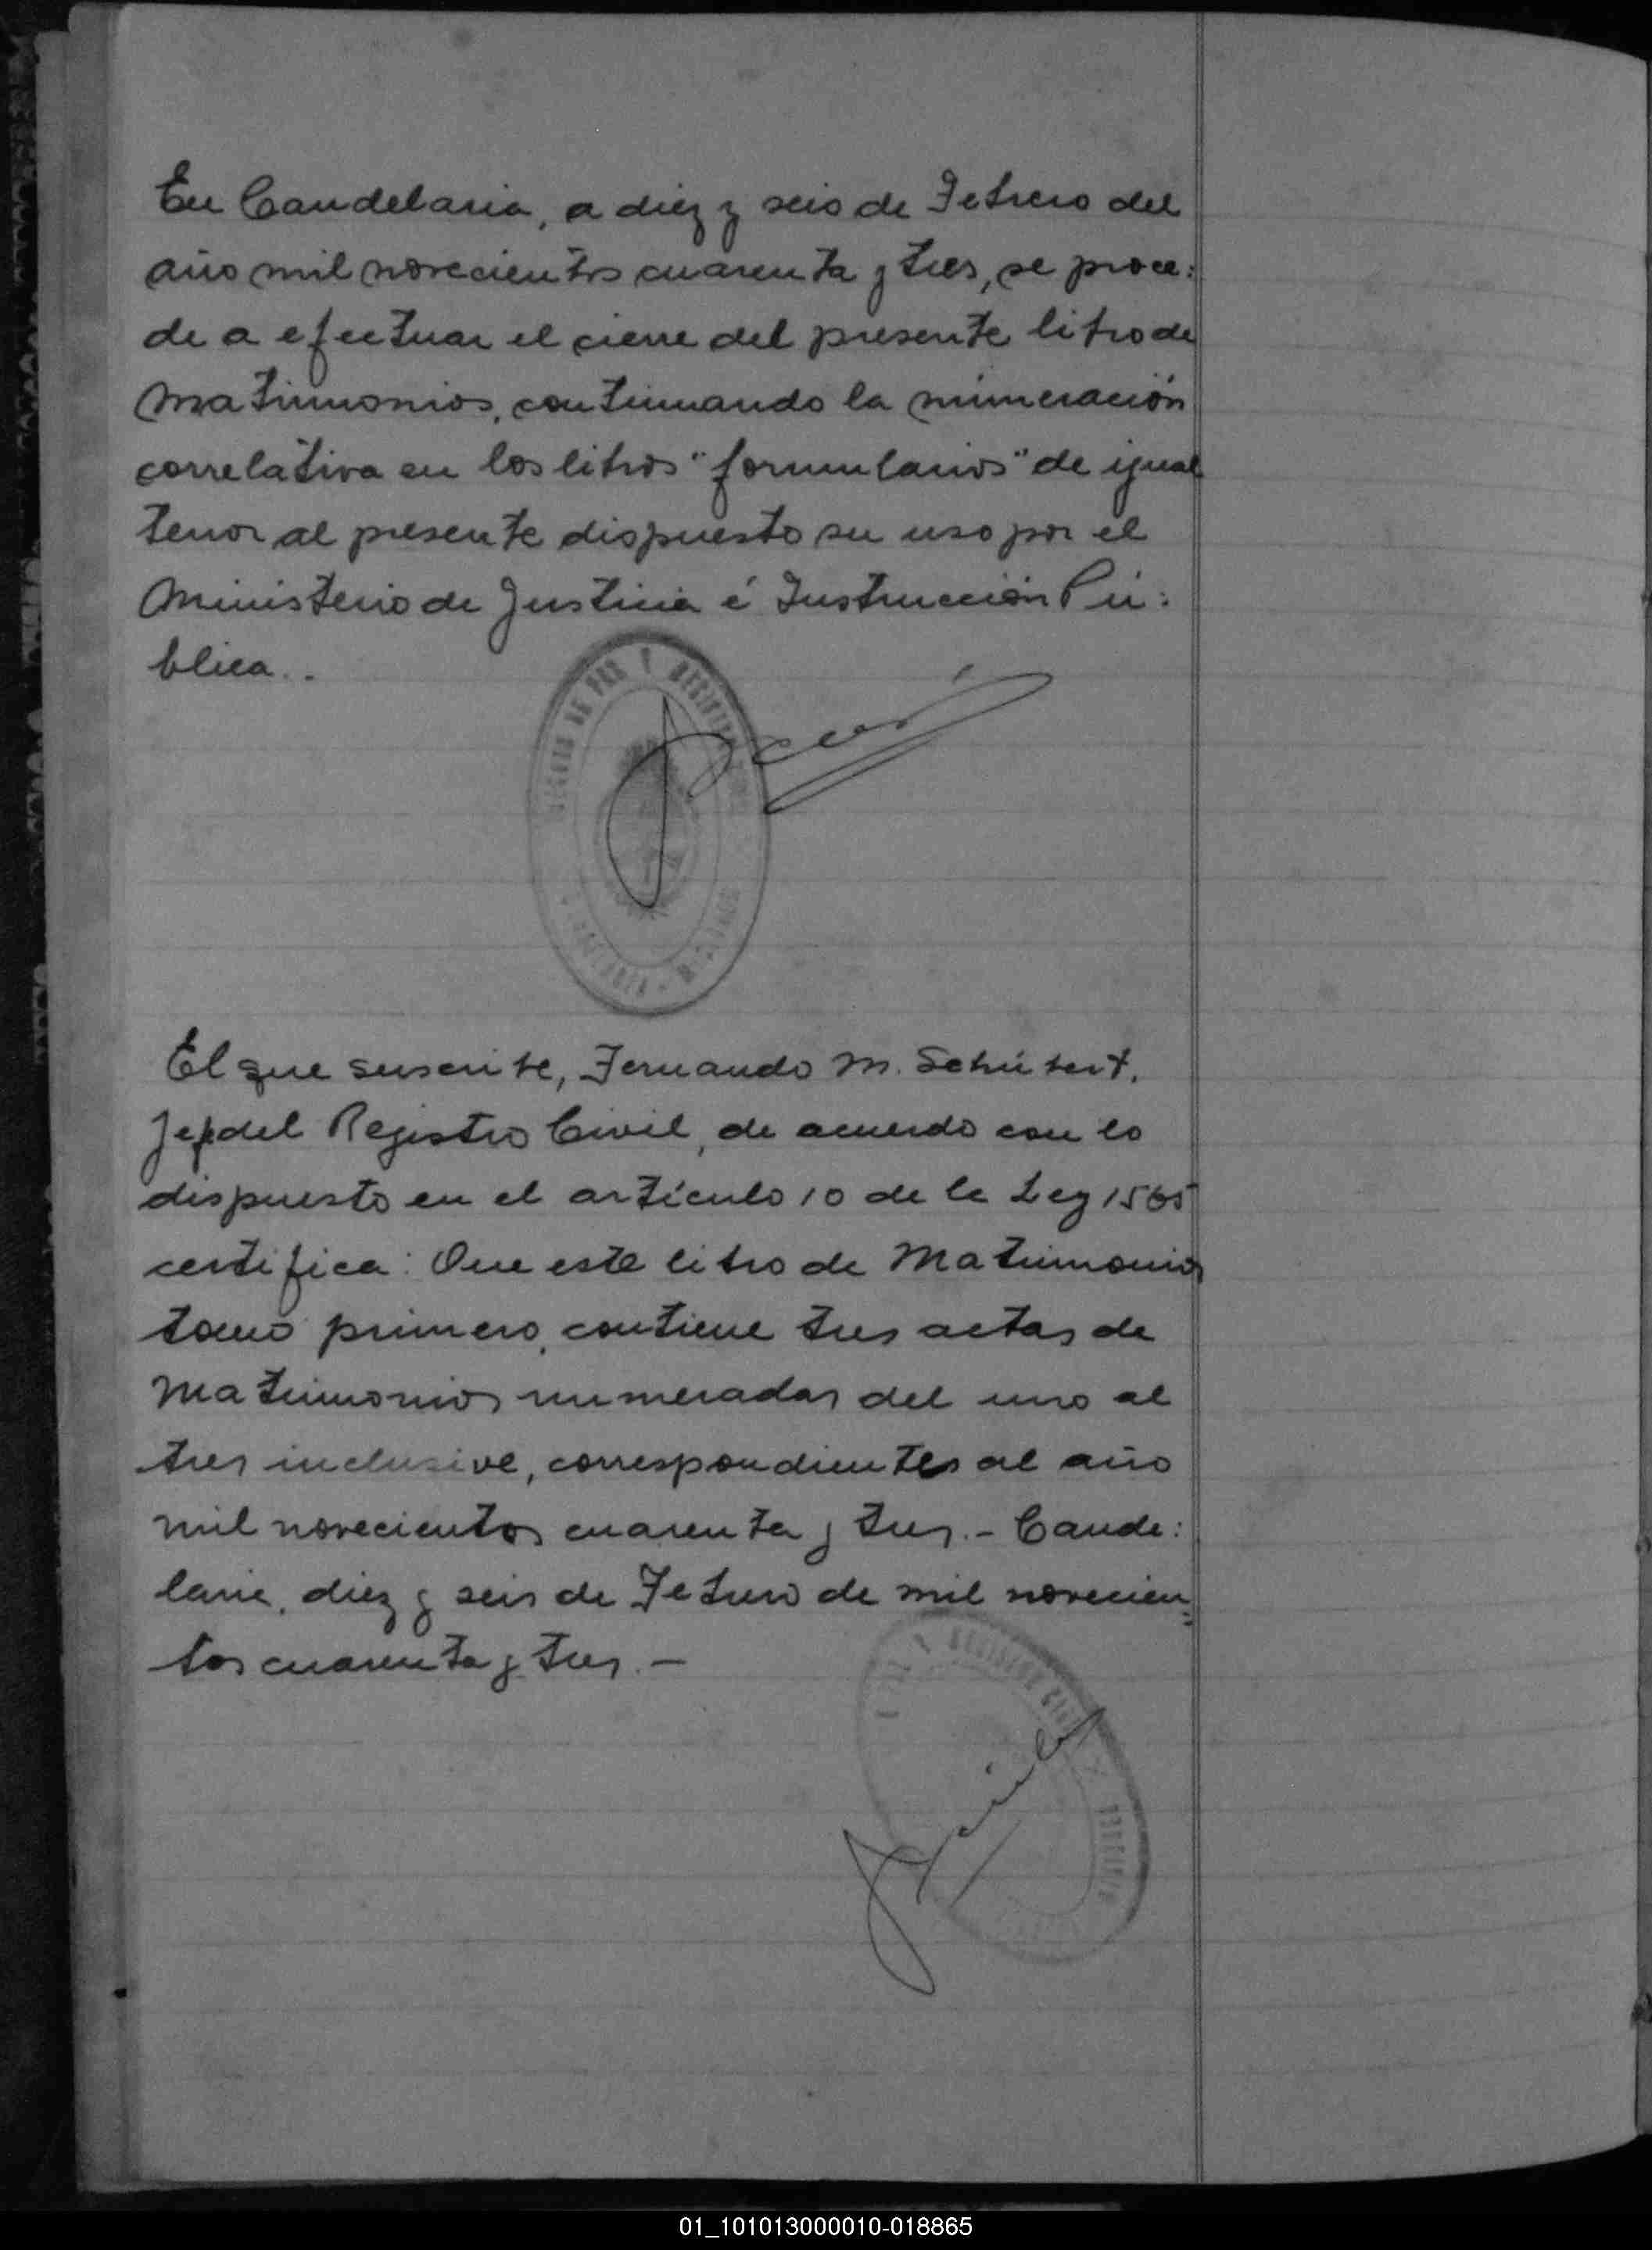 En Candelaria, a diez y seis de Febrero del
año mil novecientos cuarenta y tres, se proce:
de a efectuar el cierre del presente libro de
Matrimonios, continuando la númeración
correlativa en los libros "formularios" de igual
tenor al presente dispuesto su uso por el
Ministerio de Justicia é Instrucción Pú:
blica..
DE PAZ Y REGISTRO
El que suscribe, Fernando M. Schúbert,
Jefe del Registro Civil, de acuerdo con lo
dispuesto en el artículo 10 de la Ley 1565
certifica: Que este libro de Matrimonios
tomo primero, contiene tres actas de
Matrimonios numeradas del uno al
tres inclusive, correspondientes al año
mil novecientos cuarenta y tres.- Cande:
laria, diez y seis de Febrero de mil novecien:
tos cuarenta y tres.-
REGISTRO CIVIL
01_101013000010-018865